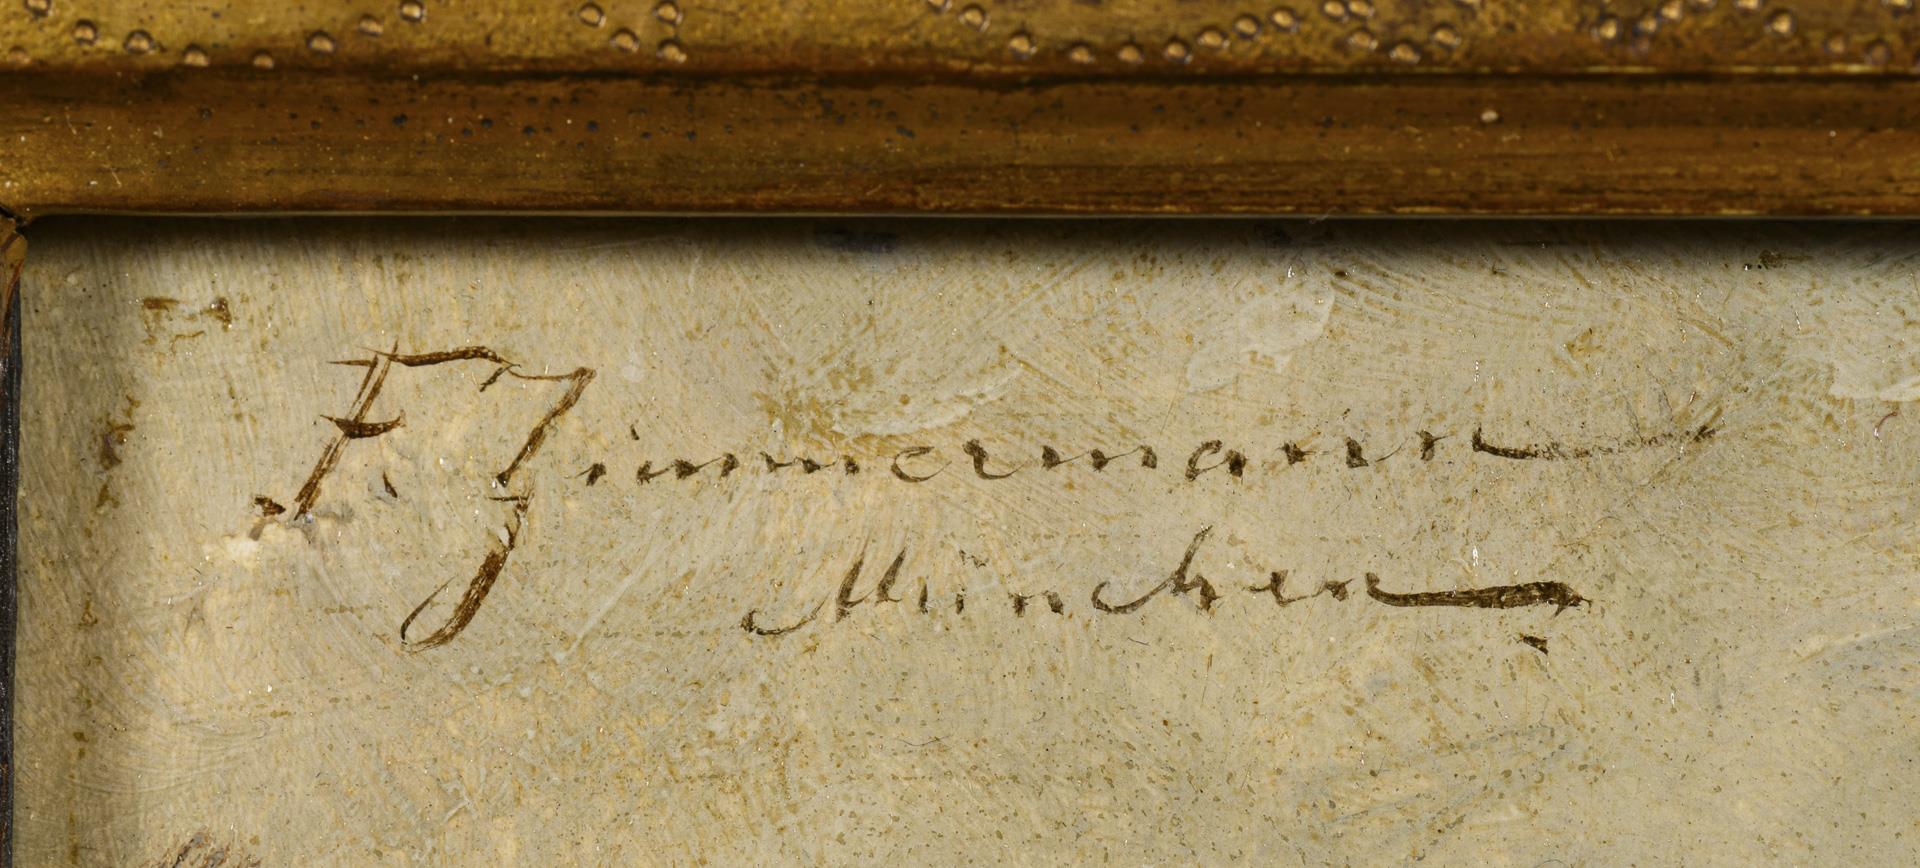 F. Zimmermann
München